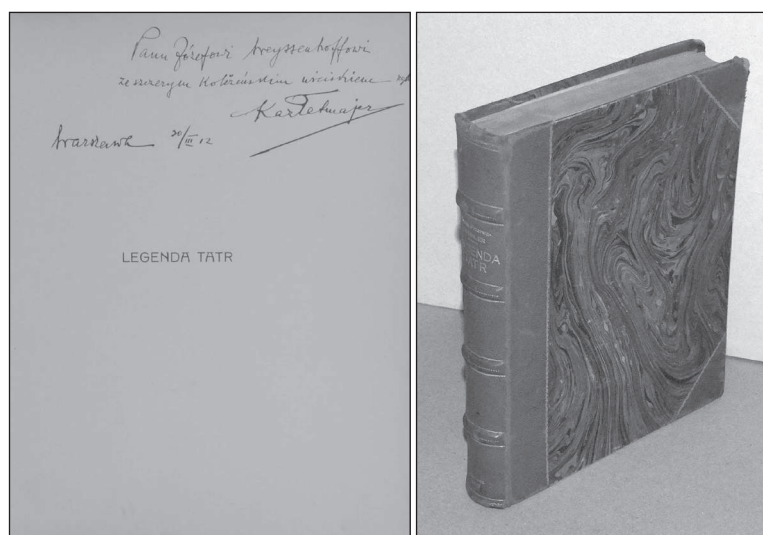 Panu Józefowi Weyssenhoffowi
ze szczerym Koleżeńskim uściśnieniem
Kaz Tetmajer
Warszawa 20/III 12
LEGENDA TATR
LEGENDA
TATR